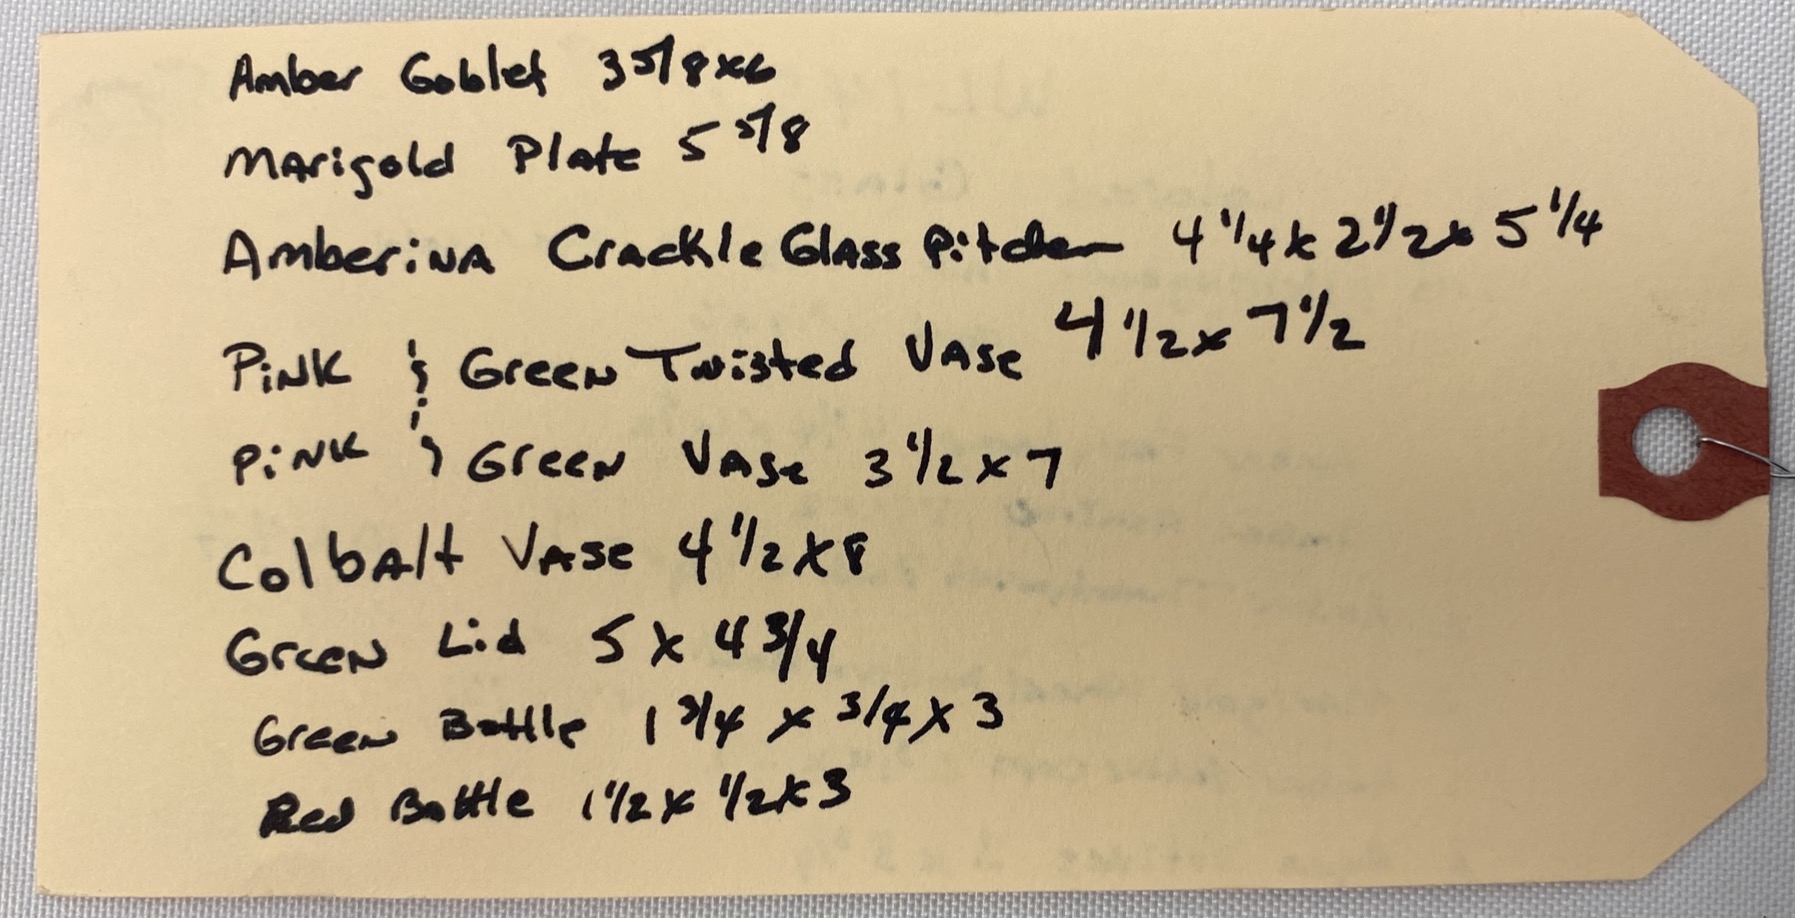 Amber Goblet 3 5/8 x 6
Marigold Plate 5 5/8
Amberina Crackle Glass Pitcher 4 1/4 x 2 1/2 x 5 1/4
Pink & Green Twisted Vase 4 1/2 x 7 1/2
Pink & Green Vase 3 1/2 x 7
Colbalt Vase 4 1/2 x 8
Green Lid 5 x 4 3/4
Green Bottle 1 3/4 x 3/4 x 3
Red Bottle 1 1/2 x 1/2 x 3